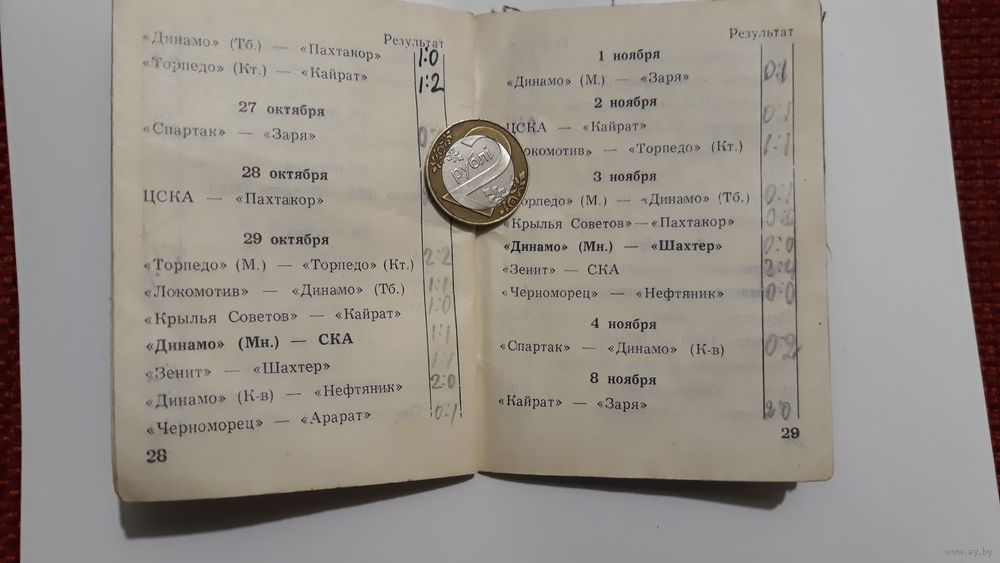 Результат
«Динамо» (Тб.) — «Пахтакор» 1:0
«Торпедо» (Кт.) — «Кайрат» 1:2
27 октября
«Спартак» — «Заря» 0:
28 октября
ЦСКА — «Пахтакор»
29 октября
«Торпедо» (М.) — «Торпедо» (Кт.) 2:2
«Локомотив» — «Динамо» (Тб.) 1:1
«Крылья Советов» — «Кайрат» 1:0
«Динамо» (Мн.) — СКА 1:1
«Зенит» — «Шахтер» 1:1
«Динамо» (К-в) — «Нефтяник» 2:0
«Черноморец» — «Арарат» 0:1
28
рублі
Результат
1 ноября
«Динамо» (М.) — «Заря» 0:1
2 ноября
ЦСКА — «Кайрат» 0:1
локомотив» — «Торпедо» (Кт.) 1:1
3 ноября
орпедо» (М.) — «Динамо» (Тб.) 0:1
«Крылья Советов» — «Пахтакор» 0:0
«Динамо» (Мн.) — «Шахтер» 0:0
«Зенит» — СКА 2:4
«Черноморец» — «Нефтяник» 0:0
4 ноября
«Спартак» — «Динамо» (К-в) 0:2
8 ноября
«Кайрат» — «Заря» 2:0
29
www.ay.by